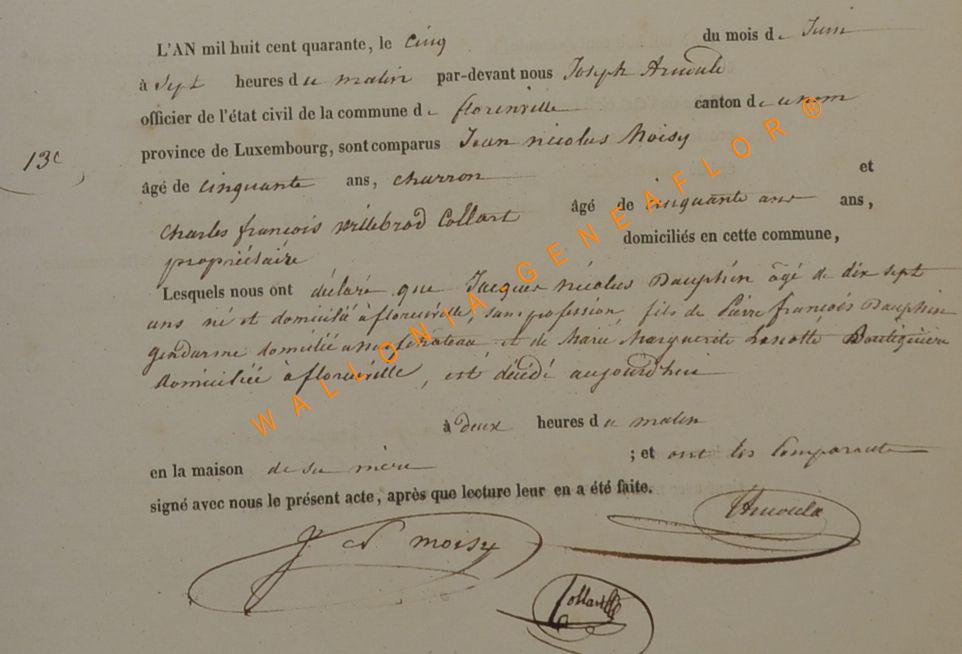 L'AN mil huit cent quarante, le cinq du mois de Juin
à sept heures du matin par-devant nous Joseph
officier de l'état civil de la commune de florenville canton de
province de Luxembourg, sont comparus Jean nicolas Moisy
13e
âgé de cinquante ans, charron et
Charles françois Willebrod Collart âgé de cinquante ans ans,
propriétaire domiciliés en cette commune,
Lesquels nous ont déclaré que Jacques nicolas Dauphin âgé de dix sept
ans né et domicilié à florenville, sans profession, fils de Pierre françois Dauphin
gendarme domicilié à et de Marie Marguerite Boutiquière
domiciliée à florenville, est décédé aujourd'hui
à deux heures du matin
en la maison de sa mère ; et ont les Comparants
signé avec nous le présent acte, après que lecture leur en a été faite.
J N moisy
Collart
WALLONIA-GENEAFLOR ®